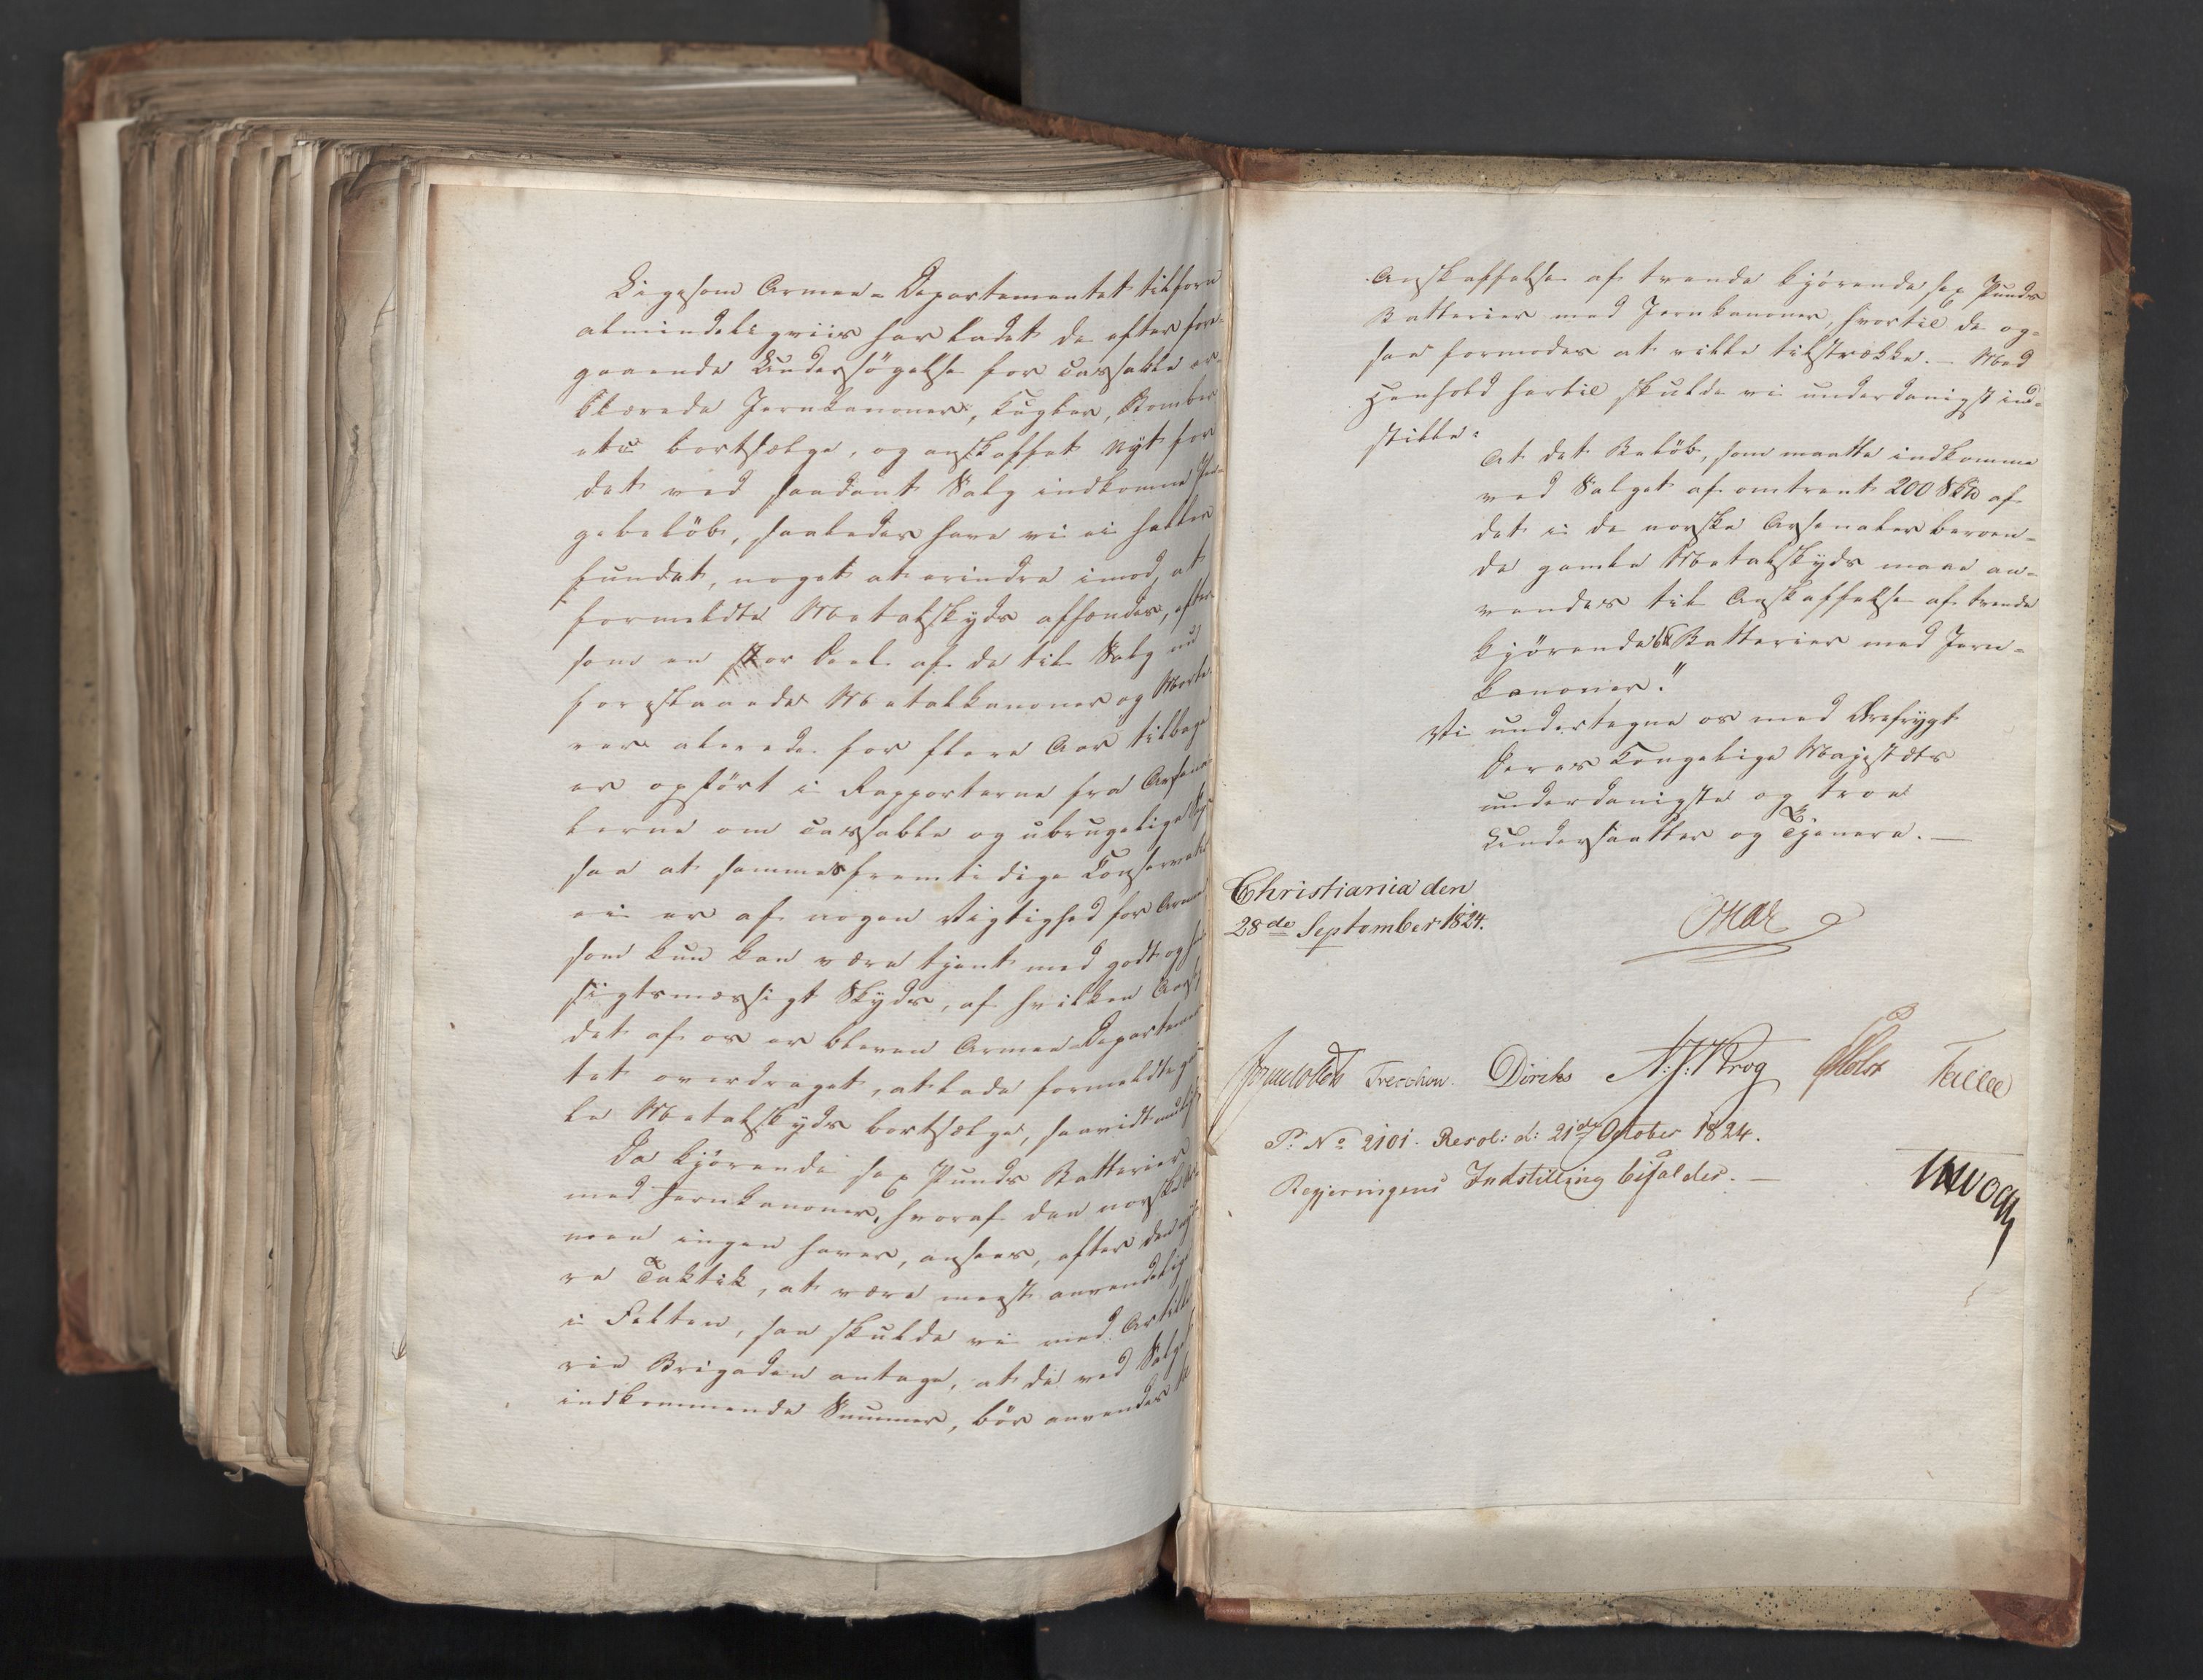 Ligesom Armee-Departementet tilforn
almindeligviis har ladet de efter fore-
gaaende Undersøgelse for cassable er-
klærede Jernkanoner, Kugler, Bomber
etc bortsælge, og anskaffet Nyt for
det ved saadant Salg indkomne Pen-
gebeløb, saaledes have vi ei heller
fundet, noget at erindre imod, at
formeldte Metalskyds afhændes, efter
som en stor Deel af de til Salg nu
forestaaede Metalkanoner og Morte-
rer alerede for flere Aar tilbage
er opført i Rapporterne fra Arsena-
lerne om cassable og ubrugelige
saa at sammes fremtidige Conservation
ei er af nogen Vigtighed for Armeen
som kun kan være tjent med godt og hen-
sigtsmæssigt Skyds, af hvilken Aarsag
det af os er bleven Armee-Departemen-
tet overdraget, at lade formeldte gam-
le Metalskyds bortsælge, saavidt muligt
Da kjørende sex Punds Batterier
med Jernkanoner, hvoraf den norske Ar-
mee ingen haver, ansees, efter den nye-
re Taktik, at være meest anvendelig
i Felten, saa skulde vi med Artille-
rie Brigaden antage, at de ved Salget
indkommende Summer, bør anvendes til
Anskaffelse af tvende kjørende sex Punds
Batterier med Jernkanoner, hvortil de og-
saa formodes at ville tilstrække. – Med
Henhold hertil skulde vi underdanigst ind-
stille:
At det Beløb, som maatte indkomme
ved Salget af omtrent 200 Sk℔ af
det i de norske Arsenaler beroen-
de gamle Metalskyds maae an-
vendes til Anskaffelse af tvende
kjørende 6℔ Batterier med Jern-
kanoner."
Vi undertegne os med Ærefrygt
Deres Kongelige Majestæts
underdanigste og troe
Undersaatter og Tjenere. —
Christiania den
28de September 1824.
Oscar
Sommerhielm Treschow. Diriks A:J:Krog PHolst Fasting
P: No 2101. Resol: d: 21de October 1824.
Regjeringens Indstilling bifaldes. —